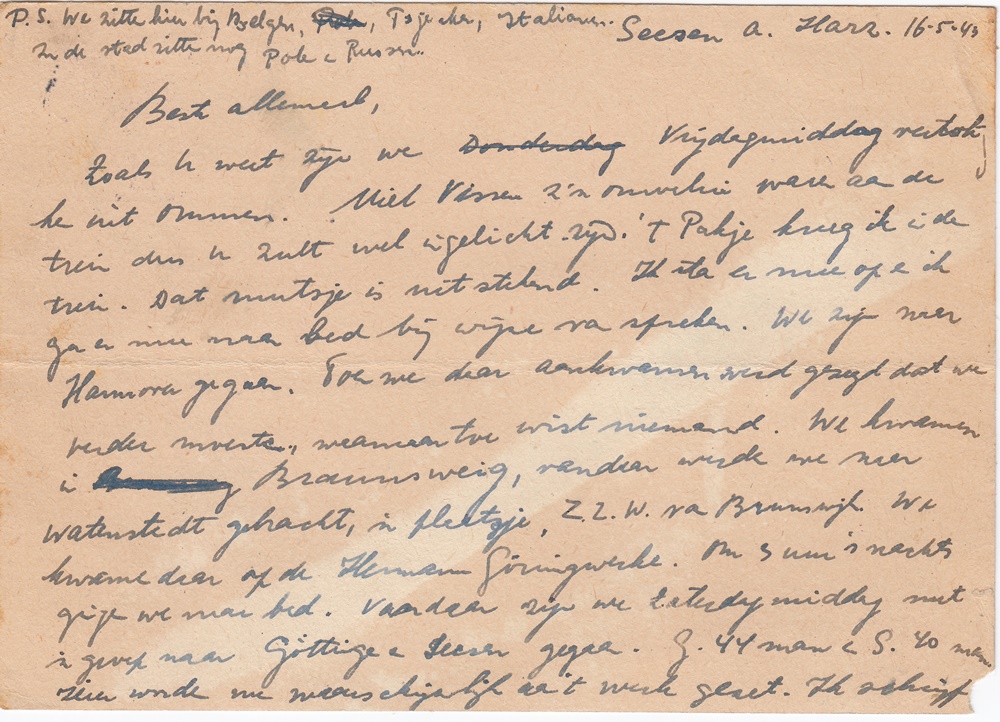 P.S. We zitte hier bij Belgen, Pole, Tsjechen, Italianen.
In de stad zitte nog Pole e Russen..
Seesen a. Harz. 16-5-43
Beste allemaal,
Zoals U weet zijn we Donderdag Vrijdagmiddag vertrok
ke uit Ommen. Miel Visser z'n ware aa de
trein dus U zult wel ingelicht zijn. 't Pakje kreeg ik i de
trein. Dat mutsje is uitstekend. Ik sta er mee op e ik
ga er mee naar bed bij wijze va spreken. We zijn naar
Hannover gegaan. Toen we daar aankwamen werd gezegd dat we
verder moeste., waarnaartoe wist niemand. We kwamen
i Braunsweig, vandaar werde we naar
Watenstedt gebracht, 'n plaatsje, Z.Z.W. va Brunswijk. We
kwame daar op de Hermann Göringwerke. Om 3 uur 's nachts
gige we naar bed. Vandaar zijn we Zaterdagmiddag met
'n groep naar Göttinge e Seesen gegaa. G. 44 man e S. 40 man.
Hier worde we waarschijnlijk aa 't werk gezet. Ik schrijf